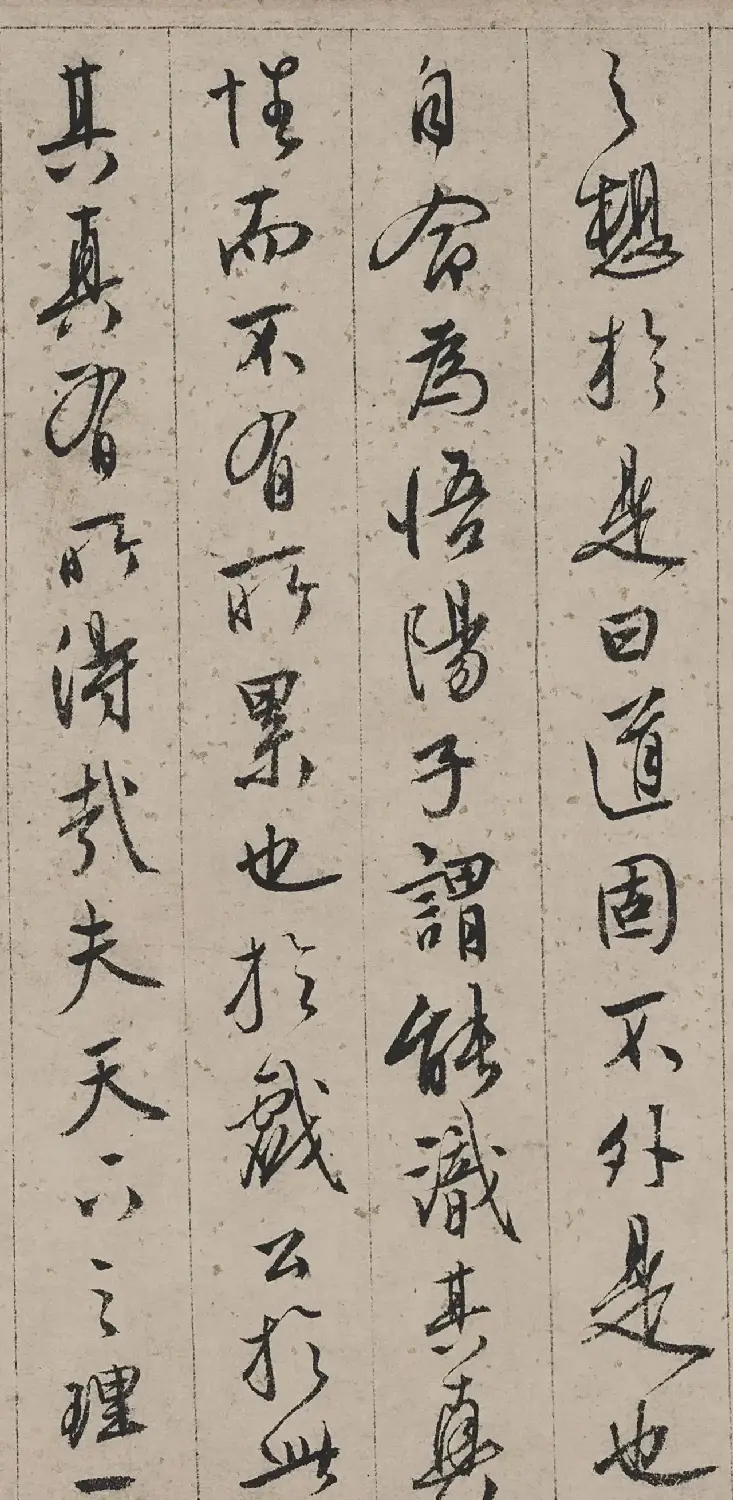 之想於是曰道固不外是也
自命為悟陽子謂能識其真
性而不有所累也於戲公於此
其真有所得哉夫天下之理一